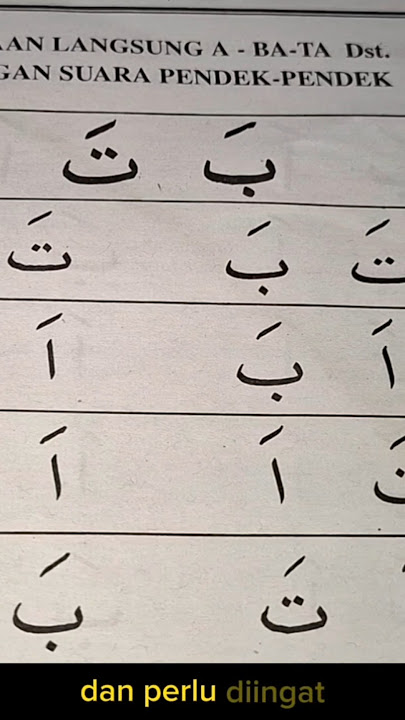 AN LANGSUNG A - BA-TA Dst.
GAN SUARA PENDEK-PENDEK
بَ تَ
تَ بَ تَ
اَ بَ اَ
اَ اَ
تَ بَ
dan perlu diingat